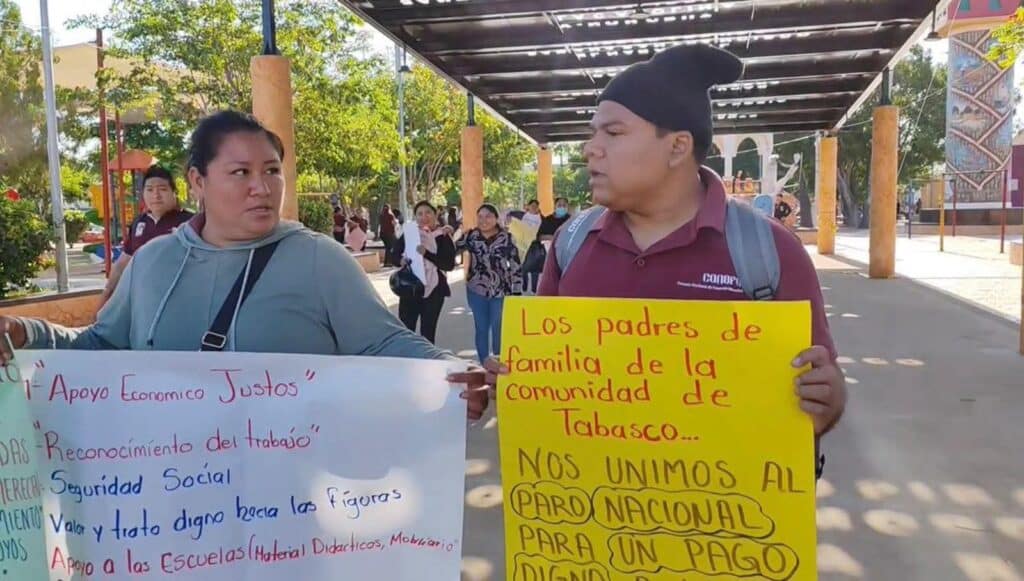 DAS
MERECEN
MIENTO
OYOS
1- "Apoyo Economico Justos"
"Reconocimiento del trabajo"
Seguridad Social
Valor y trato digno hacia las Figuras
Apoyo a las Escuelas (Material Didacticos, Mobiliario)"
CONAFE
Los padres de
familia de la
comunidad de
Tabasco...
NOS UNIMOS AL
PARO NACIONAL
PARA UN PAGO
DIGNO